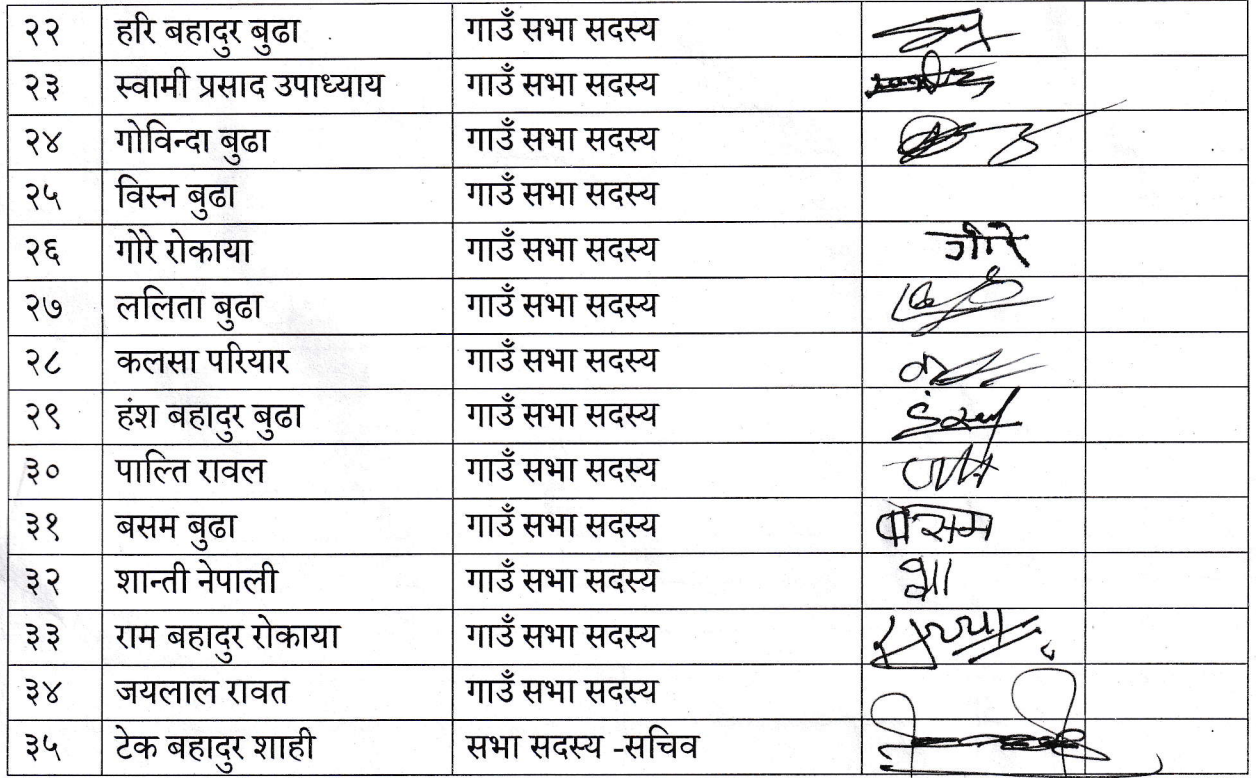 २२ हरि बहादुर बुढा गाउँ सभा सदस्य
२३ स्वामी प्रसाद उपाध्याय गाउँ सभा सदस्य
२४ गोविन्दा बुढा गाउँ सभा सदस्य
२५ विस्न बुढा गाउँ सभा सदस्य
२६ गोरे रोकाया गाउँ सभा सदस्य गोरे
२७ ललिता बुढा गाउँ सभा सदस्य
२८ कलसा परियार गाउँ सभा सदस्य
२९ हंश बहादुर बुढा गाउँ सभा सदस्य
३० पाल्ति रावल गाउँ सभा सदस्य
३१ बसम बुढा गाउँ सभा सदस्य
३२ शान्ती नेपाली गाउँ सभा सदस्य
३३ राम बहादुर रोकाया गाउँ सभा सदस्य
३४ जयलाल रावत गाउँ सभा सदस्य
३५ टेक बहादुर शाही सभा सदस्य -सचिव